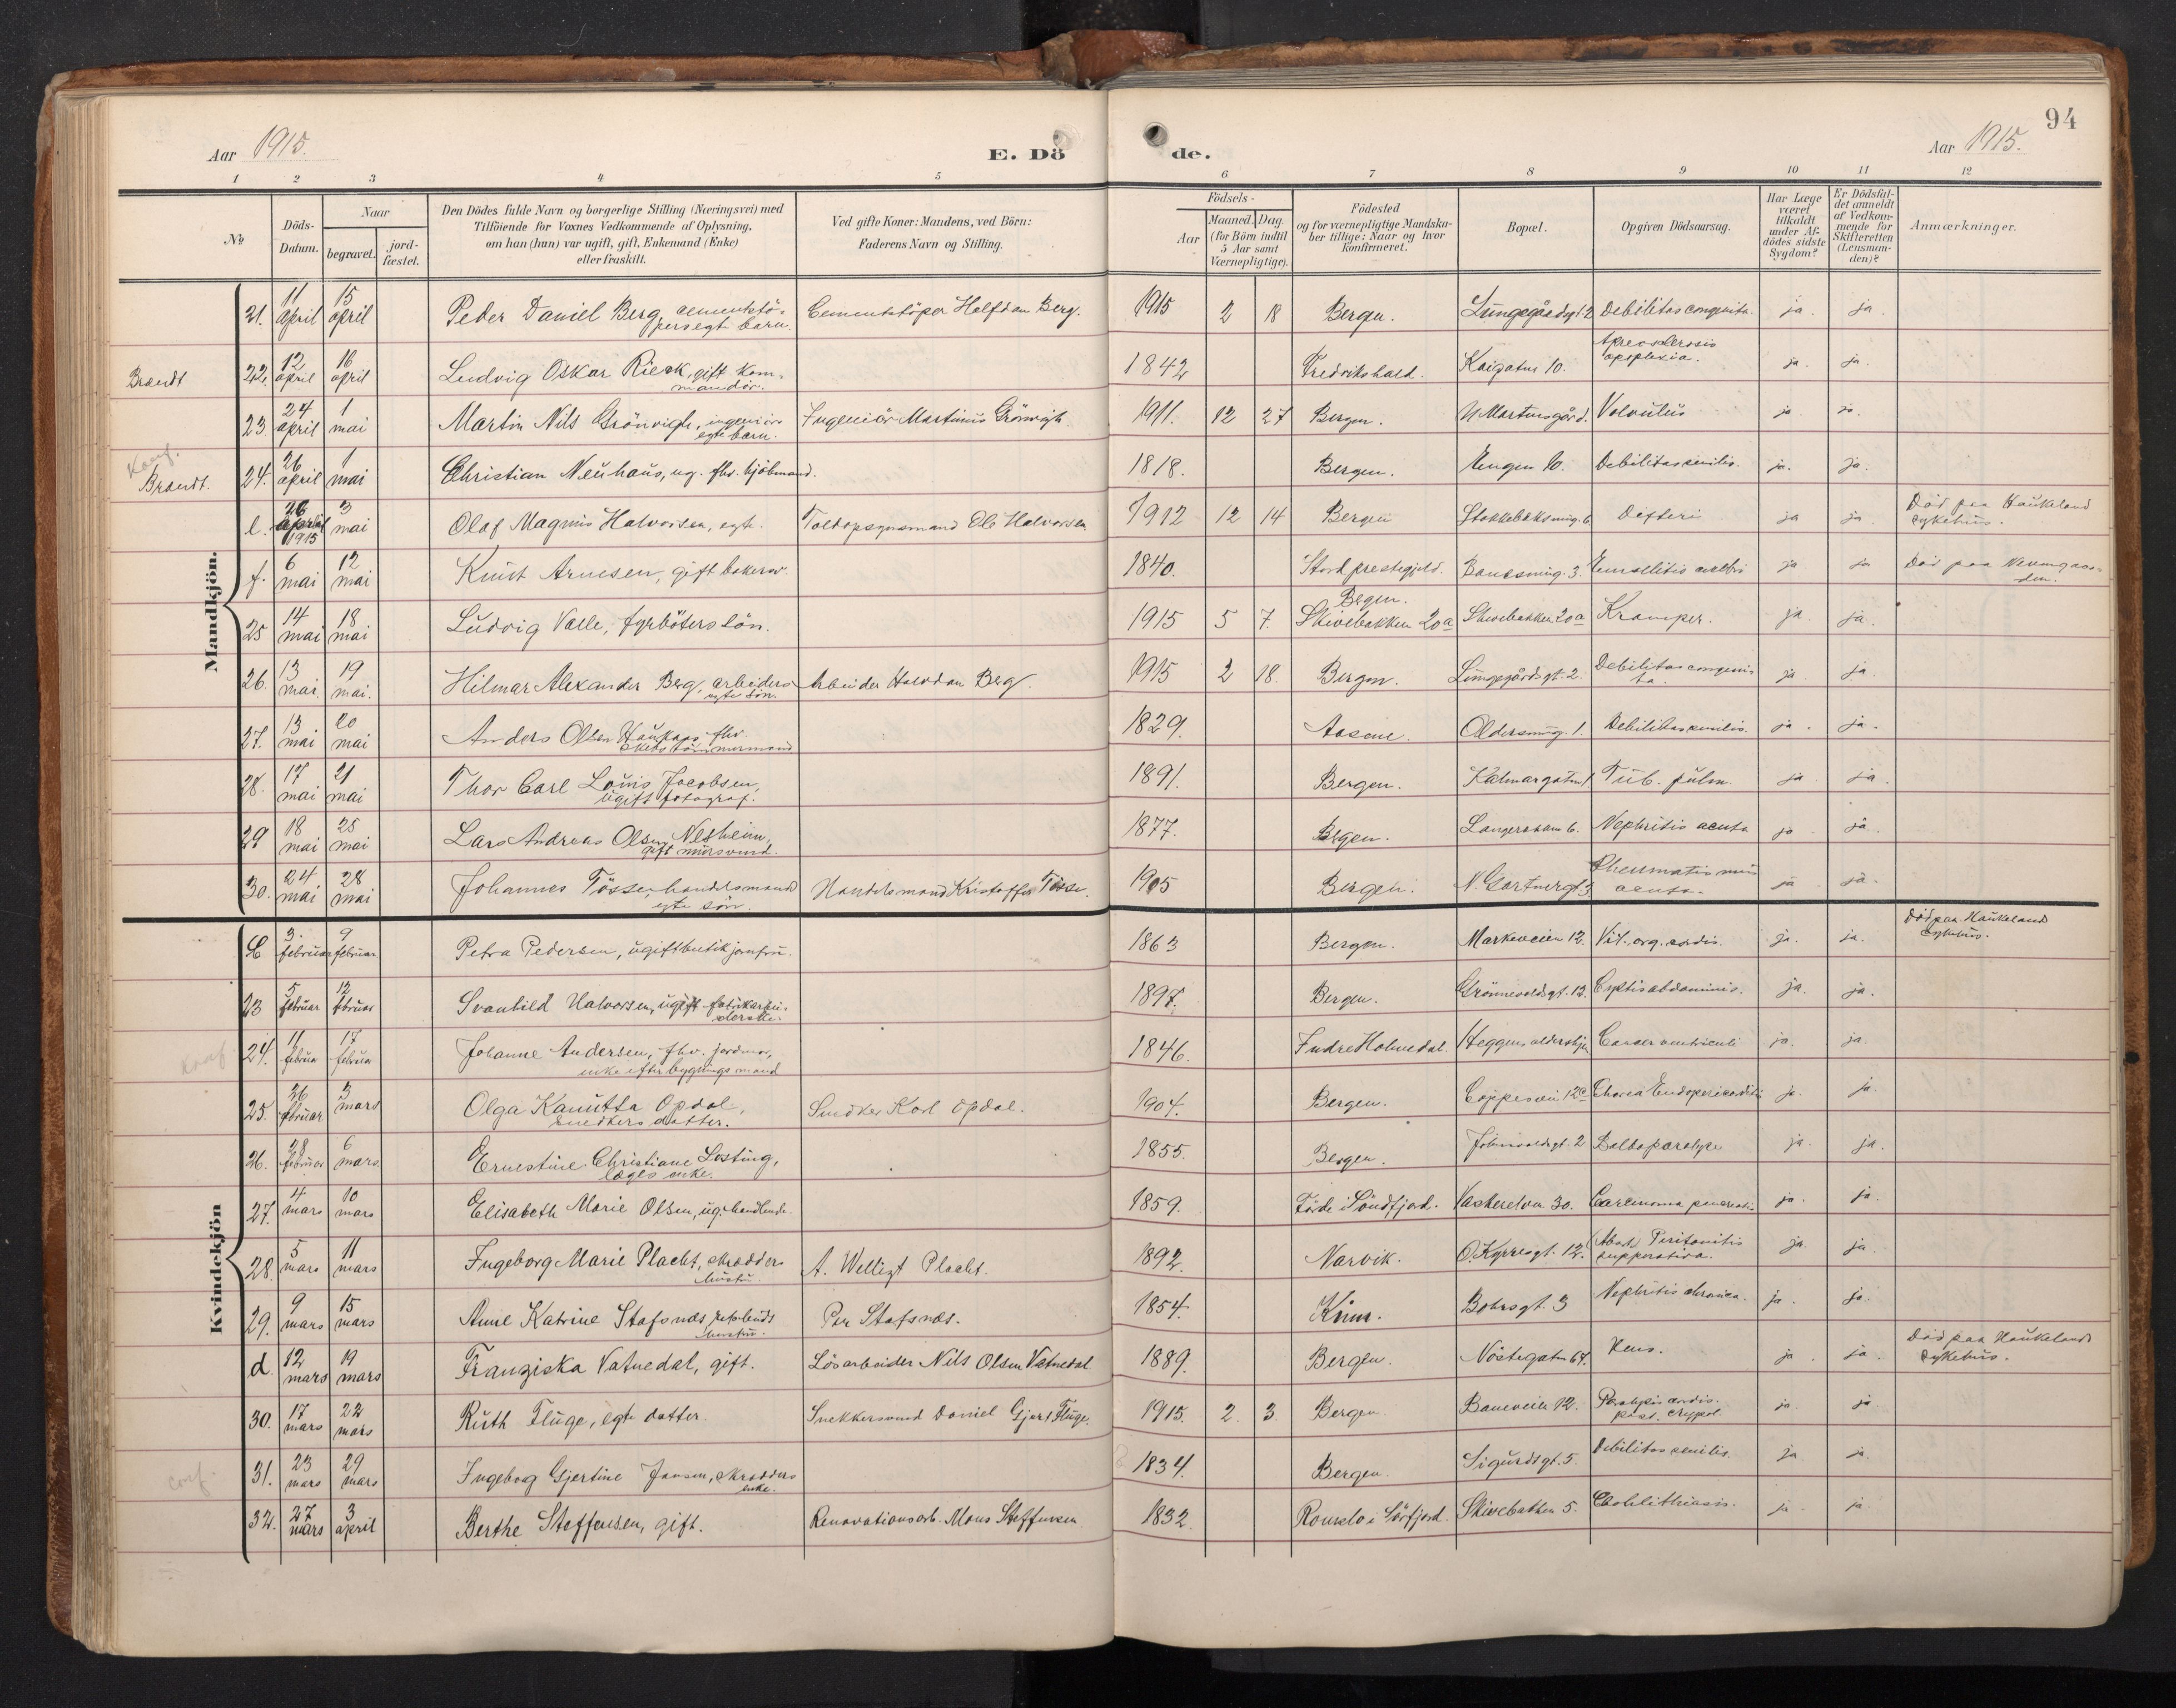 94
Aar 1915.
E. Dö de.
Aar 1915.
1 2 3 4 5 6 7 8 9 10 11 12
No
Döds-Datum.
Naar
begravet.
jord-fæstet.
Den Dödes fulde Navn og borgerlige Stilling (Næringsvei) med
Tilföiende for Voxnes Vedkommende af Oplysning,
om han (hun) var ugift, gift, Enkemand (Enke)
eller fraskilt.
Ved gifte Koner: Mandens, ved Börn:
Faderens Navn og Stilling.
Födsels-
Aar
Maaned. Dag.
(for Börn indtil
5 Aar samt
Værnepligtige).
Födested
og for værnepligtige Mandska-
ber tillige: Naar og hvor
konfirmeret.
Bopæl.
Opgiven Dödsaarsag.
Har Læge
været
tilkaldt
under Af-
dödes sidste
Sygdom?
Er Dödsfal-
det anmeldt
af Vedkom-
mende for
Skifteretten
(Lensman-
den)?
Anmærkninger.
Mandkjön.
21. 11 april 15 april Peder Daniel Berg, cementstö-
persegt barn. Cementstöper Halfdan Berg. 1915 2 18 Bergen. Lungegårdsgt. 2 Debilitas congenita. ja. ja.
Brandt 22. 12 april 16 april Ludvig Oskar Rieck, gift kom-
mandör. 1842 Fredrikshald. Kaigaten 10. apoplexia. ja. ja.
23. 24 april 1 mai Martin Nils Grönvigh, ingeniörs
egte barn. Ingeniör Martinus Grönvigh. 1911. 12 27 Bergen. Volvulus ja. ja.
Konf.
Brandt. 24. 26 april 1 mai Christian Neuhaus, ug. fhv. kjöbmand. 1818. Bergen. Engen 10. Debilitas senilis. ja. ja.
e. 26 april 1915 3 mai Olaf Magnus Halvorsen, egte. Toldopsynsmand Ole Halvorsen 1912 12 14 Bergen Stokkebaksmug. 6 Defteri ja ja Död paa Haukeland
sykehus.
f. 6 mai 12 mai Knut Arnesen, gift bakersv. 1840. Stord prestegjeld. 3. ja ja Död paa
25 14 mai 18 mai Ludvig Valle, fyrböters sön. 1915 5 7. Bergen.
Skivebakken 20a Skivebakken 20a Kramper. ja. ja.
26. 13 mai. 19 mai. Hilmar Alexander Berg, arbeiders
egte sön. Arbeider Halvdan Berg. 1915 2 18. Bergen. Lungegårdsgt. 2. Debilitas congeni-
ta. ja. ja.
27. 13 mai 20 mai Anders Olsen Haukaas, fhv.
skibstömmermand 1829. Aasene. Oldersmug. 1. Debilitas senilis. ja. ja.
28. 17 mai 21 mai Thor Carl Louis Jacobsen,
ugift fotograf. 1891. Bergen. Kalmargaten 1 Tub. pulm. ja. ja.
29 18 mai 25 mai Lars Andreas Olsen Nesheim,
gift mursvend. 1877. Bergen. 6. Nephritis acuta ja ja.
30. 24 mai 28 mai Johannes Tösse, handelsmands
egte sön. Handelsmand Kristoffer Tösse. 1905 Bergen. N. Gartnergt. 3 Rheumatismus
acuta. ja. ja.
Kvindekjön
C 3. februar 9 februar Petra Pedersen, ugift butikjomfru. 1863 Bergen. Markeveien 12. Vit. org. cordis. ja. ja. Död paa Haukelands
sykehus.
23 5 februar 12 februar Svanhild Halvorsen, ugift fabrikarbei-
derske. 1897. Bergen. Grönnevoldsgt. 13. abdominis. ja. ja.
24. 11 februar 17 februar Johanne Andersen, fhv. jordmor,
enke efter bygningsmand 1846. Indre Holmedal. Heggens aldershjem Cancer ventriculi ja. ja.
25. 26 februar 3 mars Olga Kanutta Opdal,
snedkers datter. Snedker Karl Opdal. 1904. Bergen. 12a Chorea Endopericarditis ja. ja.
26. 28 februar 6 mars Ernestine Christiane Losting,
læges enke. 1855. Bergen. 2 ja. ja.
27. 4 mars 10 mars Elisabeth Marie Olsen, ug. handlende. 1859. Förde i Söndfjord. 30. Carcinoma pancreatis ja. ja.
28. 5 mars 11 mars Ingeborg Marie Placht, skrædders
hustru. A. Placht. 1892. Narvik. O. Kyrresgt. 12. (Abort) Peritonitis
suppurativa. ja ja.
29. 9 mars 15 mars Anne Katrine Stafsnes,
hustru. Per Stafsnes. 1854. Kinn. Bohrsgt. 3 Nephritis chronica. ja. ja.
d. 12 mars 19 mars Franziska Vatnedal, gift. Lösarbeider Nils Olsen Vatnedal 1889. Bergen. Nöstegaten 67. ja. ja. Död paa Haukelands
sykehus.
30. 17 mars 22 mars Ruth Fluge, egte datter. Snekkersvend Daniel Gjert Fluge. 1915. 2. 3. Bergen. Baneveien 12. Paralysis cordis.
ja. ja.
conf. 31. 23 mars 29 mars Ingeborg Gjertine Jansen, skrædders
enke. 1834. Bergen. Sigurdsgt. 5. Debilitas senilis. ja ja.
32. 27 mars 3 april Berthe Steffensen, gift. Renovationsarb. Mons Steffensen 1832. Skivebakken 5. Cholelithiasis. ja. ja.